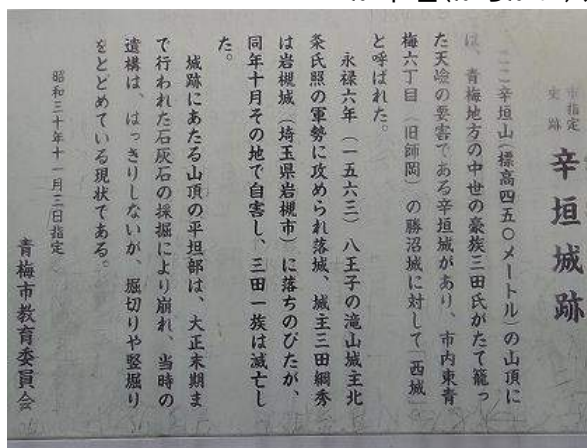 市指定
史跡
辛垣城跡
ここ辛垣山(標高四五〇メートル)の山頂に
は、青梅地方の中世の豪族三田氏がたて籠っ
た天嶮の要害である辛垣城があり、市内東青
梅六丁目(旧師岡)の勝沼城に対して「西城」
と呼ばれた。
永禄六年(一五六三)八王子の滝山城主北
条氏照の軍勢に攻められ落城、城主三田綱秀
は岩槻城(埼玉県岩槻市)に落ちのびたが、
同年十月その地で自害し、三田一族は滅亡し
た。
城跡にあたる山頂の平坦部は、大正末期ま
で行われた石灰石の採掘により崩れ、当時の
遺構は、はっきりしないが、堀切りや竪堀り
をとどめている現状である。
昭和三十年十一月三日指定
青梅市教育委員会